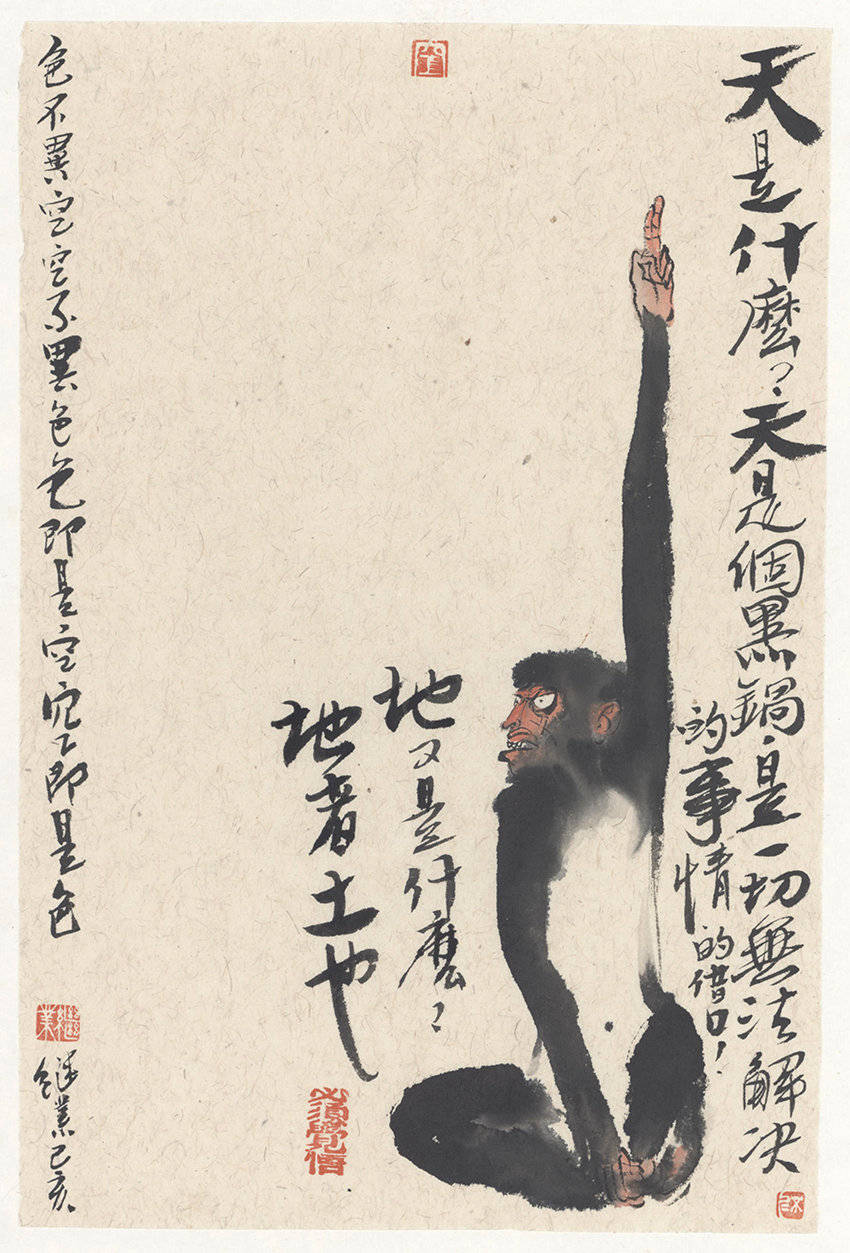 天是什麼？天是個黑鍋，是一切無法解决
的事情的借口！
地又是什麼？
地者土也
必須覺悟
色不異空空不異色色即是空空即是色
繼業
继業己亥